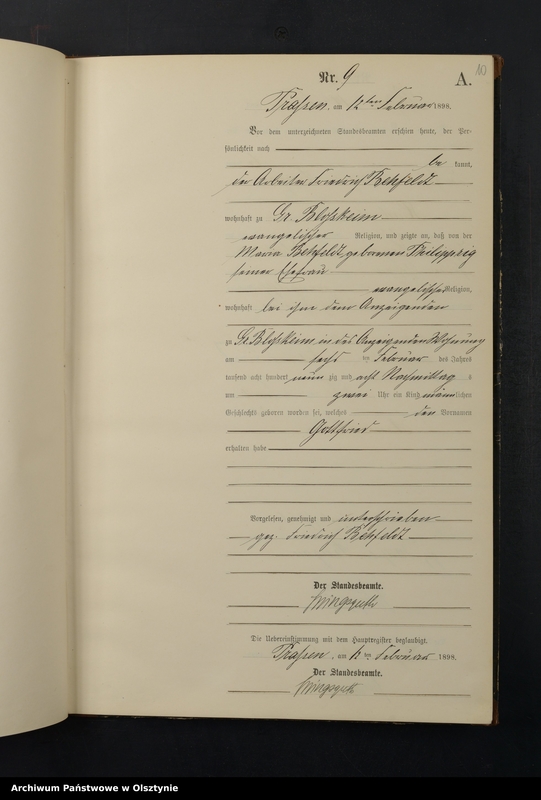 10
Nr. 9
A.
Prassen, am 12ten Februar 1898.
Vor dem unterzeichneten Standesbeamten erschien heute, der Per-
sönlichkeit nach
be kannt,
der Arbeiter Friedrich Rehfeldt
wohnhaft zu Gr. Bloskeim
evangelischer Religion, und zeigte an, daß von der
Maria Rehfeldt, geborenen
seiner Ehefrau
evangelischer Religion,
wohnhaft bei ihm dem Anzeigenden
zu Gr. Bloskeim in des Anzeigenden Wohnung
am sechs ten Februar des Jahres
tausend acht hundert neun zig und acht Nachmittag s
um zwei Uhr ein Kind männlichen
Geschlechts geboren worden sei, welches den Vornamen
Gottfried
erhalten habe
Vorgelesen, genehmigt und unterschrieben
gez. Friedrich Rehfeldt
Der Standesbeamte.
Die Uebereinstimmung mit dem Hauptregister beglaubigt.
Prassen, am 12 ten Februar 1898.
Der Standesbeamte.
Archiwum Państwowe w Olsztynie